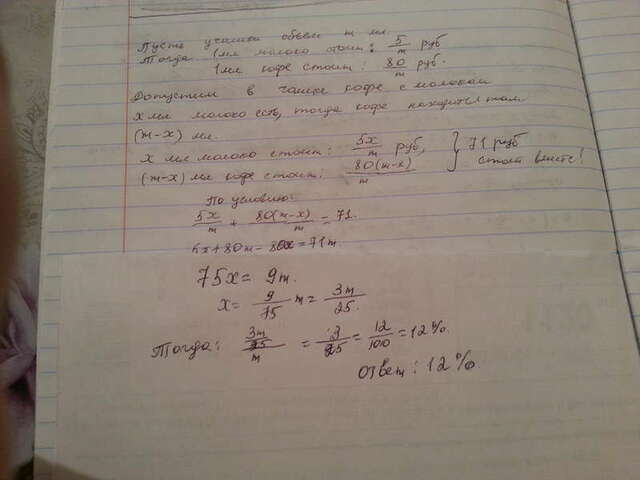 Пусть у чашки объем m мл.
Тогда 1мл молоко стоит: 5/m руб
1мл кофе стоит: 80/m руб.
Допустим в чашке кофе с молоком
x мл молоко есть, тогда кофе находится там
(m-x) мл.
x мл молоко стоит: 5x/m руб, } 71 руб
(m-x) мл кофе стоит: 80(m-x)/m стоит вместе!
По условию:
5x/m + 80(m-x)/m = 71.
5x+80m-80x=71m.
75x = 9m.
x = 9/75 m = 3m/25.
Тогда: 3m/25/m = 3/25 = 12/100 = 12%.
Ответ: 12%